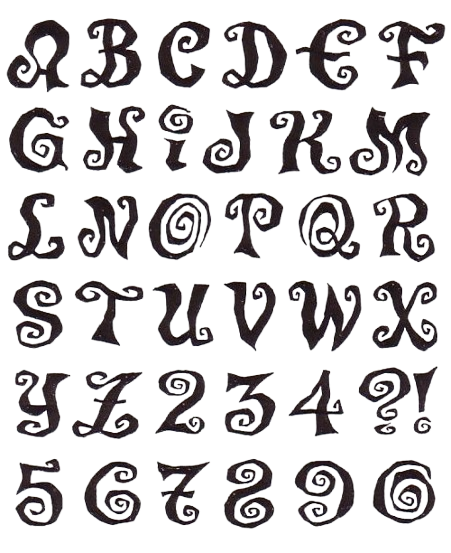 A B C D E F
G H i J K M
L N O P Q R
S T U V W X
Y Z 2 3 4 ?!
5 6 7 8 9 0